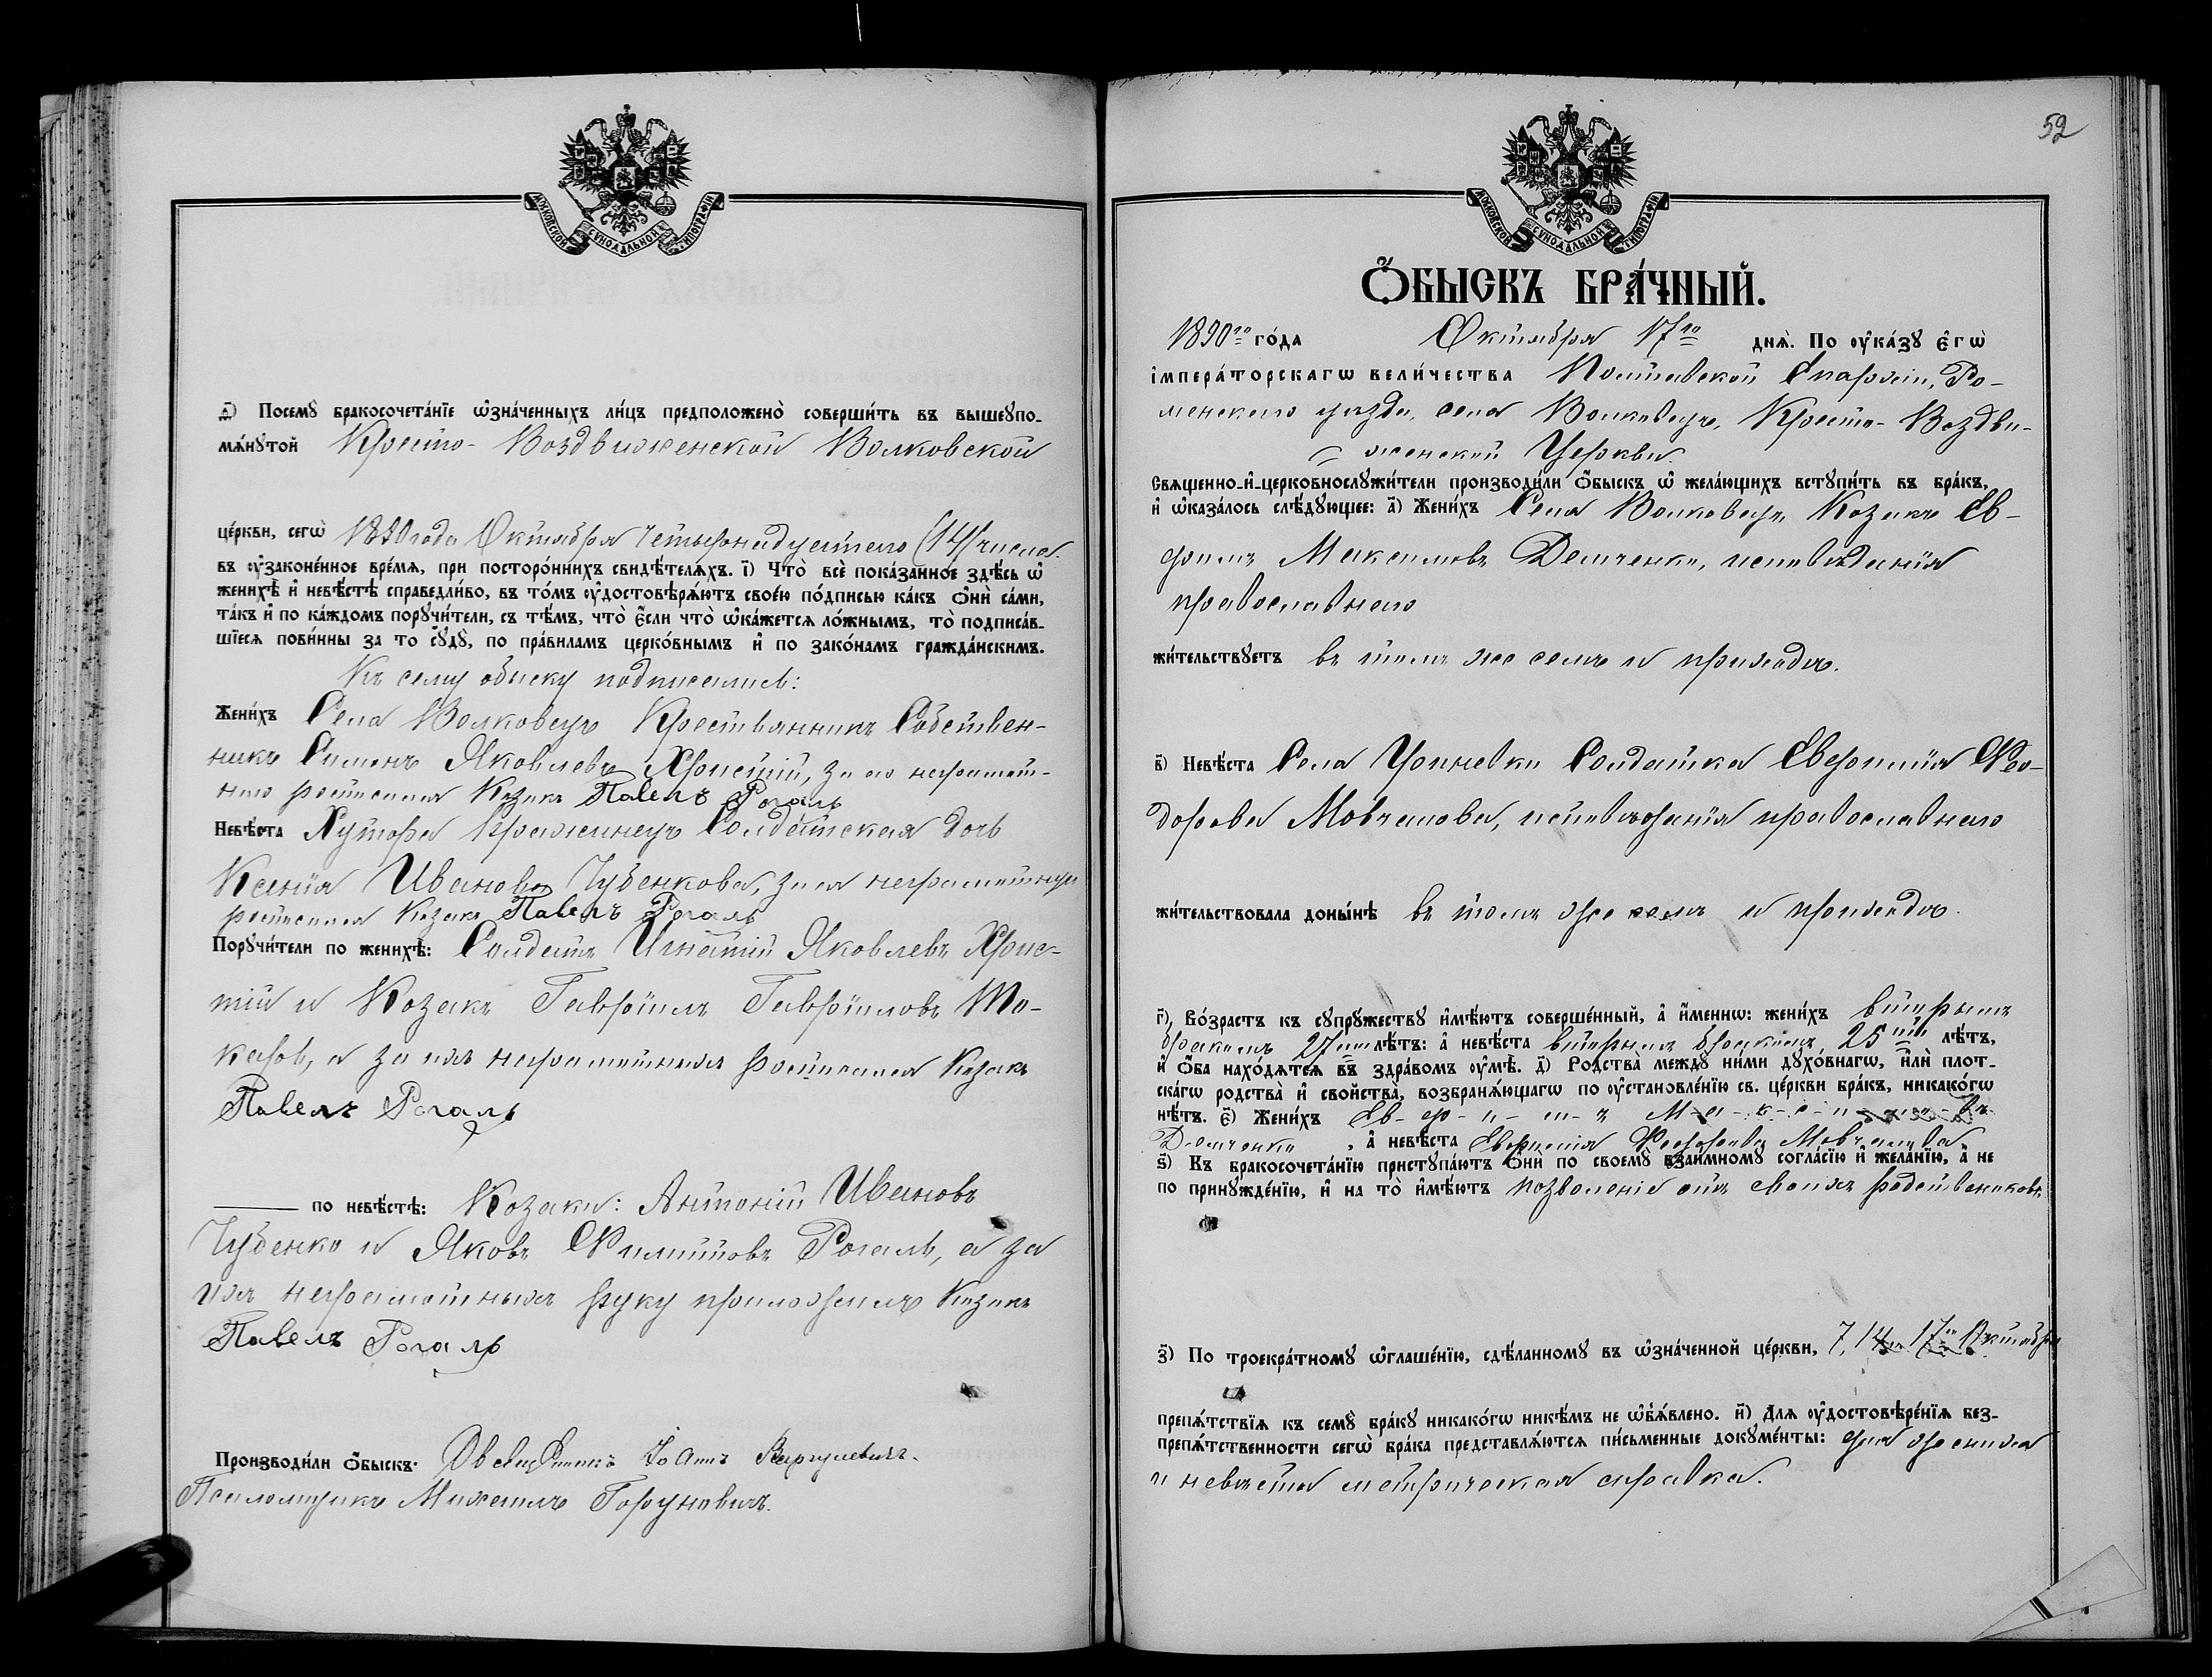 МОСКОВСКОЙ СѴНОДАЛЬНОЙ ТИПОГРАФІИ
д҃і) Посемꙋ бракосочета́нїе ѡ҆зна́ченныхъ ли́цъ предположено̀ соверши́ть въ вышеꙋпо-
мѧ́нꙋтой Кресто-Воздвиженской Волковской
це́ркви, сегѡ̀ 1890 года Октября Четырнадцатаго (14) числа.
въ ᲂу҆зако́ненное вре́мѧ, при посторо́ннихъ свидѣ́телѧхъ. і҃) Что̀ всѐ пока́занное здѣ́сь ѡ҆
женихѣ̀ и҆ невѣ́стѣ справедли́во, въ то́мъ ᲂу҆достовѣрѧ́ютъ свое́ю по́дписью ка́къ Ѻ҆нѝ са́ми,
та́къ и҆ по ка́ждомъ порꙋчи́тели, съ тѣ́мъ, что̀ є҆́сли что̀ ѡ҆ка́жетсѧ ло́жнымъ, то̀ подписа́в-
шїесѧ пови́нны за то сꙋдꙋ̀, по пра́виламъ церко́внымъ и҆ по зако́намъ гражда́нскимъ.
Къ сему обыску подписались:
Жени́хъ Села Волковецъ Крестьянинъ Собствен-
никъ Симонъ Яковлевъ Христій, за его неграмот-
наго росписался Козакъ Павелъ Рогаль
Невѣ́ста Хутора Солдатская дочь
Ксенія Иванова Чубенкова, за ея неграмотную
росписался Козакъ Павелъ Рогаль
Порꙋчи́тели по женихѣ̀: Солдатъ Игнатій Яковлевъ Хрис-
тій и Козакъ Гавріилъ Гавріиловъ То-
каровъ, а за ихъ неграмотныхъ росписался Козакъ
Павелъ Рогаль
по невѣ́стѣ: Козаки: Антоній Ивановъ
Чубенко и Яковъ Филипповъ Рогаль, а за
ихъ неграмотныхъ руку приложилъ Козакъ
Павелъ Рогаль
Производи́ли ѻ҆́быскъ: Священникъ Іоаннъ
Псаломщикъ Михаилъ Горуновичъ.
52
МОСКОВСКОЙ СѴНОДАЛЬНОЙ ТИПОГРАФІИ
Ѻ҆́БЫСКЪ БРА́ЧНЫЙ.
1890го го́да Октября 17го днѧ̀. По ᲂу҆ка́зꙋ є҆гѡ̀
і҆мпера́торскагѡ вели́чества Полтавской Епархіи, Ро-
менскаго уѣзда, села Волковецъ, Кресто-Воздви-
женской Церкви
Свѧщенно-и҆-церковнослꙋжи́тели производи́ли Ѻ҆́быскъ ѡ҆ жела́ющихъ встꙋпи́ть въ бра́къ,
и҆ ѡ҆каза́лось слѣ́дꙋющее: а҃) Жени́хъ Села Волковецъ Козакъ Ев-
фимъ Максимовъ Демченко, исповѣданія
православнаго
жи́тельствꙋетъ въ томъ же селѣ и приходѣ.
в҃) Невѣ́ста Села Солдатка Евфимія Фео-
дорова Мовчанова, исповѣданія православнаго
жи́тельствовала доны́нѣ въ томъ же селѣ и приходѣ.
г҃) Во́зрастъ къ сꙋпрꙋ́жествꙋ и҆мѣ́ютъ соверше́нный, а҆ и҆́меннѡ: жени́хъ вторымъ
бракомъ 27 ми лѣ́тъ: а҆ невѣ́ста вторымъ бракомъ 25 ти лѣ́тъ,
и҆ Ѻ҆́ба нахо́дѧтсѧ въ здра́вомъ ᲂу҆мѣ̀. д҃) Родства̀ междꙋ ни́ми дꙋхо́внагѡ, и҆лѝ пло́т-
скагѡ родства̀ и҆ свойства̀, возбранѧ́ющагѡ по ᲂу҆становле́нїю св. це́ркви бра́къ, никако́гѡ
нѣ́тъ. є҃) Жени́хъ Ев-ф-и-м-ъ М-а-к-с-и-м-о-въ
Демченко, а҆ невѣ́ста Евфимія Феодорова Мовчанова
ѕ҃) Къ бракосочета́нїю пристꙋпа́ютъ Ѻ҆нѝ по своемꙋ̀ взаи́мномꙋ согла́сїю и҆ жела́нїю, а҆ не
по принꙋжде́нїю, и҆ на то̀ и҆мѣ́ютъ позволеніе отъ своихъ родствениковъ
з҃) По троекра́тномꙋ ѡ҆глаше́нїю, сдѣ́ланномꙋ въ ѡ҆зна́ченной це́ркви, 7, 14 и 17го Октября
препѧ́тствїѧ къ семꙋ̀ бра́кꙋ никако́гѡ никѣ́мъ не ѡ҆б̾ѧ́влено. и҃) Для ᲂу҆достовѣре́нїѧ без-
препѧ́тственности сегѡ̀ бра́ка представлѧ́ютсѧ пи́сьменные докꙋме́нты: для жениха
и невѣсты метрическая справка.